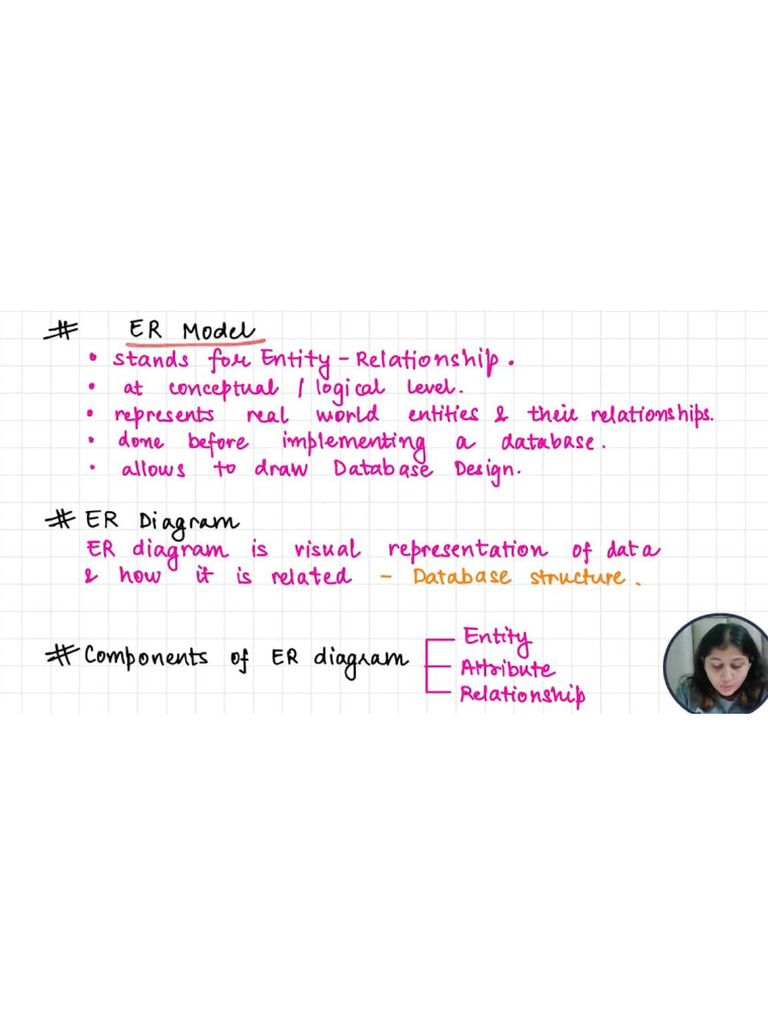 # ER Model
• stands for Entity - Relationship.
• at conceptual / logical level.
• represents real world entities & their relationships.
• done before implementing a database.
• allows to draw Database Design.
# ER Diagram
ER diagram is visual representation of data
& how it is related - Database structure.
# Components of ER diagram
Entity
Attribute
Relationship